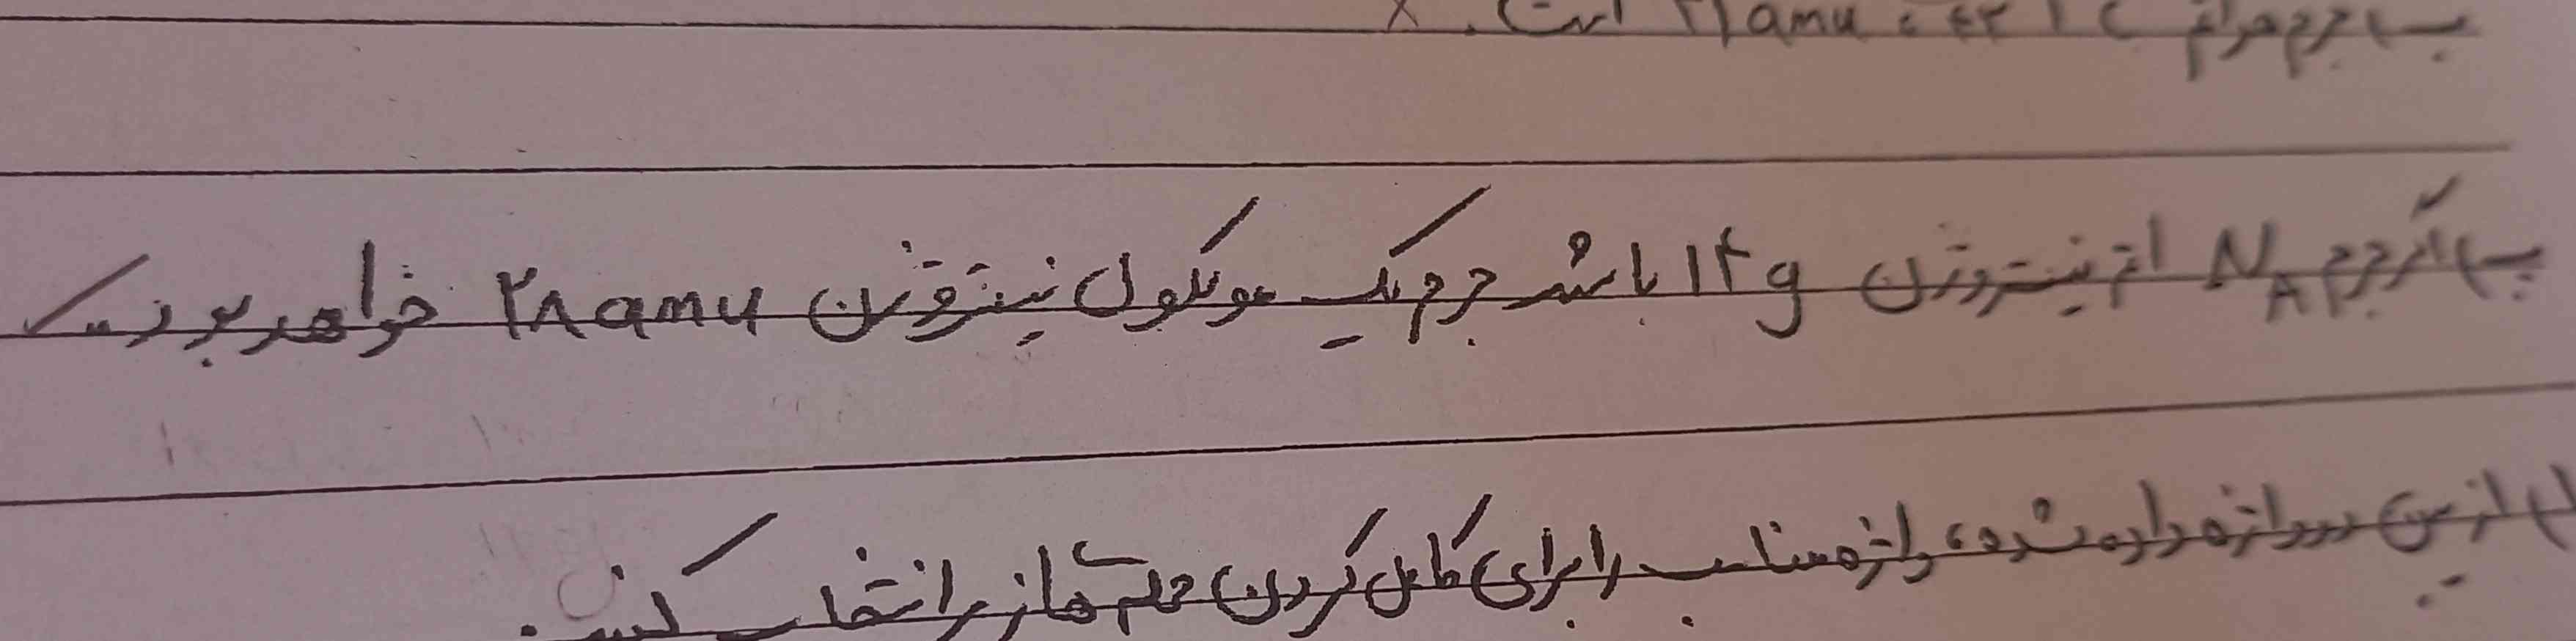 ب) جرم هر اتم ... ۲۱amu است. ×
ب) اگر جرم NA اتم نیتروژن ۱۴g باشد جرم یک مولکول نیتروژن ۲۸amu خواهد بود. ✓
از بین دو واژه داده شده، واژه مناسب را برای کامل کردن جمله های زیر انتخاب کنید.